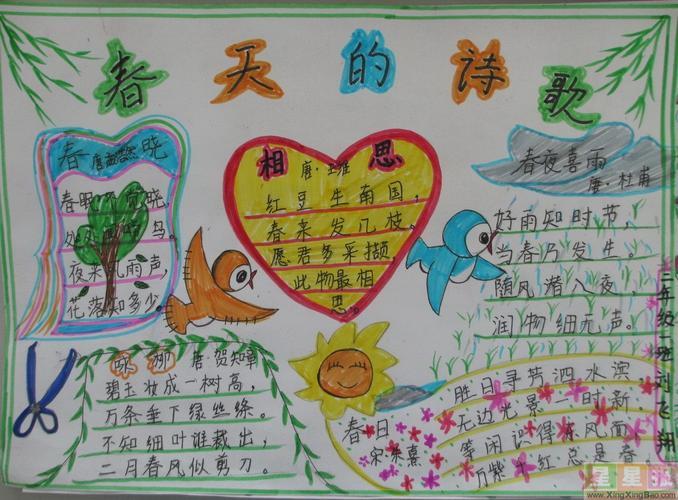 春天的诗歌
春晓
唐 孟浩然
春眠不觉晓,
处处闻啼鸟。
夜来风雨声,
花落知多少。
相思
唐·王维
红豆生南国,
春来发几枝。
愿君多采撷,
此物最相
思。
春夜喜雨
唐·杜甫
好雨知时节,
当春乃发生。
随风潜入夜,
润物细无声。
咏柳
唐·贺知章
碧玉妆成一树高,
万条垂下绿丝绦。
不知细叶谁裁出,
二月春风似剪刀。
春日
宋 朱熹
胜日寻芳泗水滨,
无边光景 时新,
等闲识得东风面,
万紫千红总是春
二年级一班刘飞翔
星星报
www.XingXingBao.com